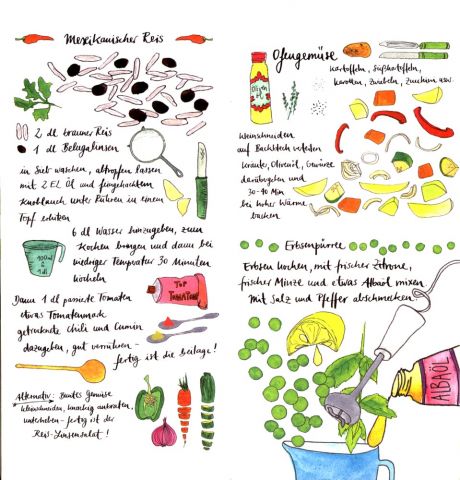 Mexikanischer Reis
2 dl brauner Reis
1 dl Belugalinsen
in Sieb waschen, abtropfen lassen
mit 2 EL Öl und feingehacktem
Knoblauch unter Rühren in einem
Topf erhitzen
6 dl Wasser hinzugeben, zum
Kochen bringen und dann bei
niedriger Temperatur 30 Minuten
köcheln
100 ml
1 dl
Dann 1 dl passierte Tomaten
etwas Tomatenmark
getrocknete Chili und Cumin
dazugeben, gut verrühren -
fertig ist die Beilage!
TOP
TOMATOES
Alternativ: Buntes Gemüse
kleinschneiden, knackig anbraten,
unterheben - fertig ist der
Reis-Linsensalat!
Ofengemüse
Kartoffeln, Süßkartoffeln,
Karotten, Zwiebeln, Zucchini usw.
Oliven
Öl
kleinschneiden
auf Backblech verteilen
Kräuter, Olivenöl, Gewürze
darübergeben und
30-40 Min
bei hoher Wärme
backen
Erbsenpürree
Erbsen kochen, mit frischer Zitrone,
frischer Minze und etwas Albaöl mixen
Mit Salz und Pfeffer abschmecken
ALBAÖL